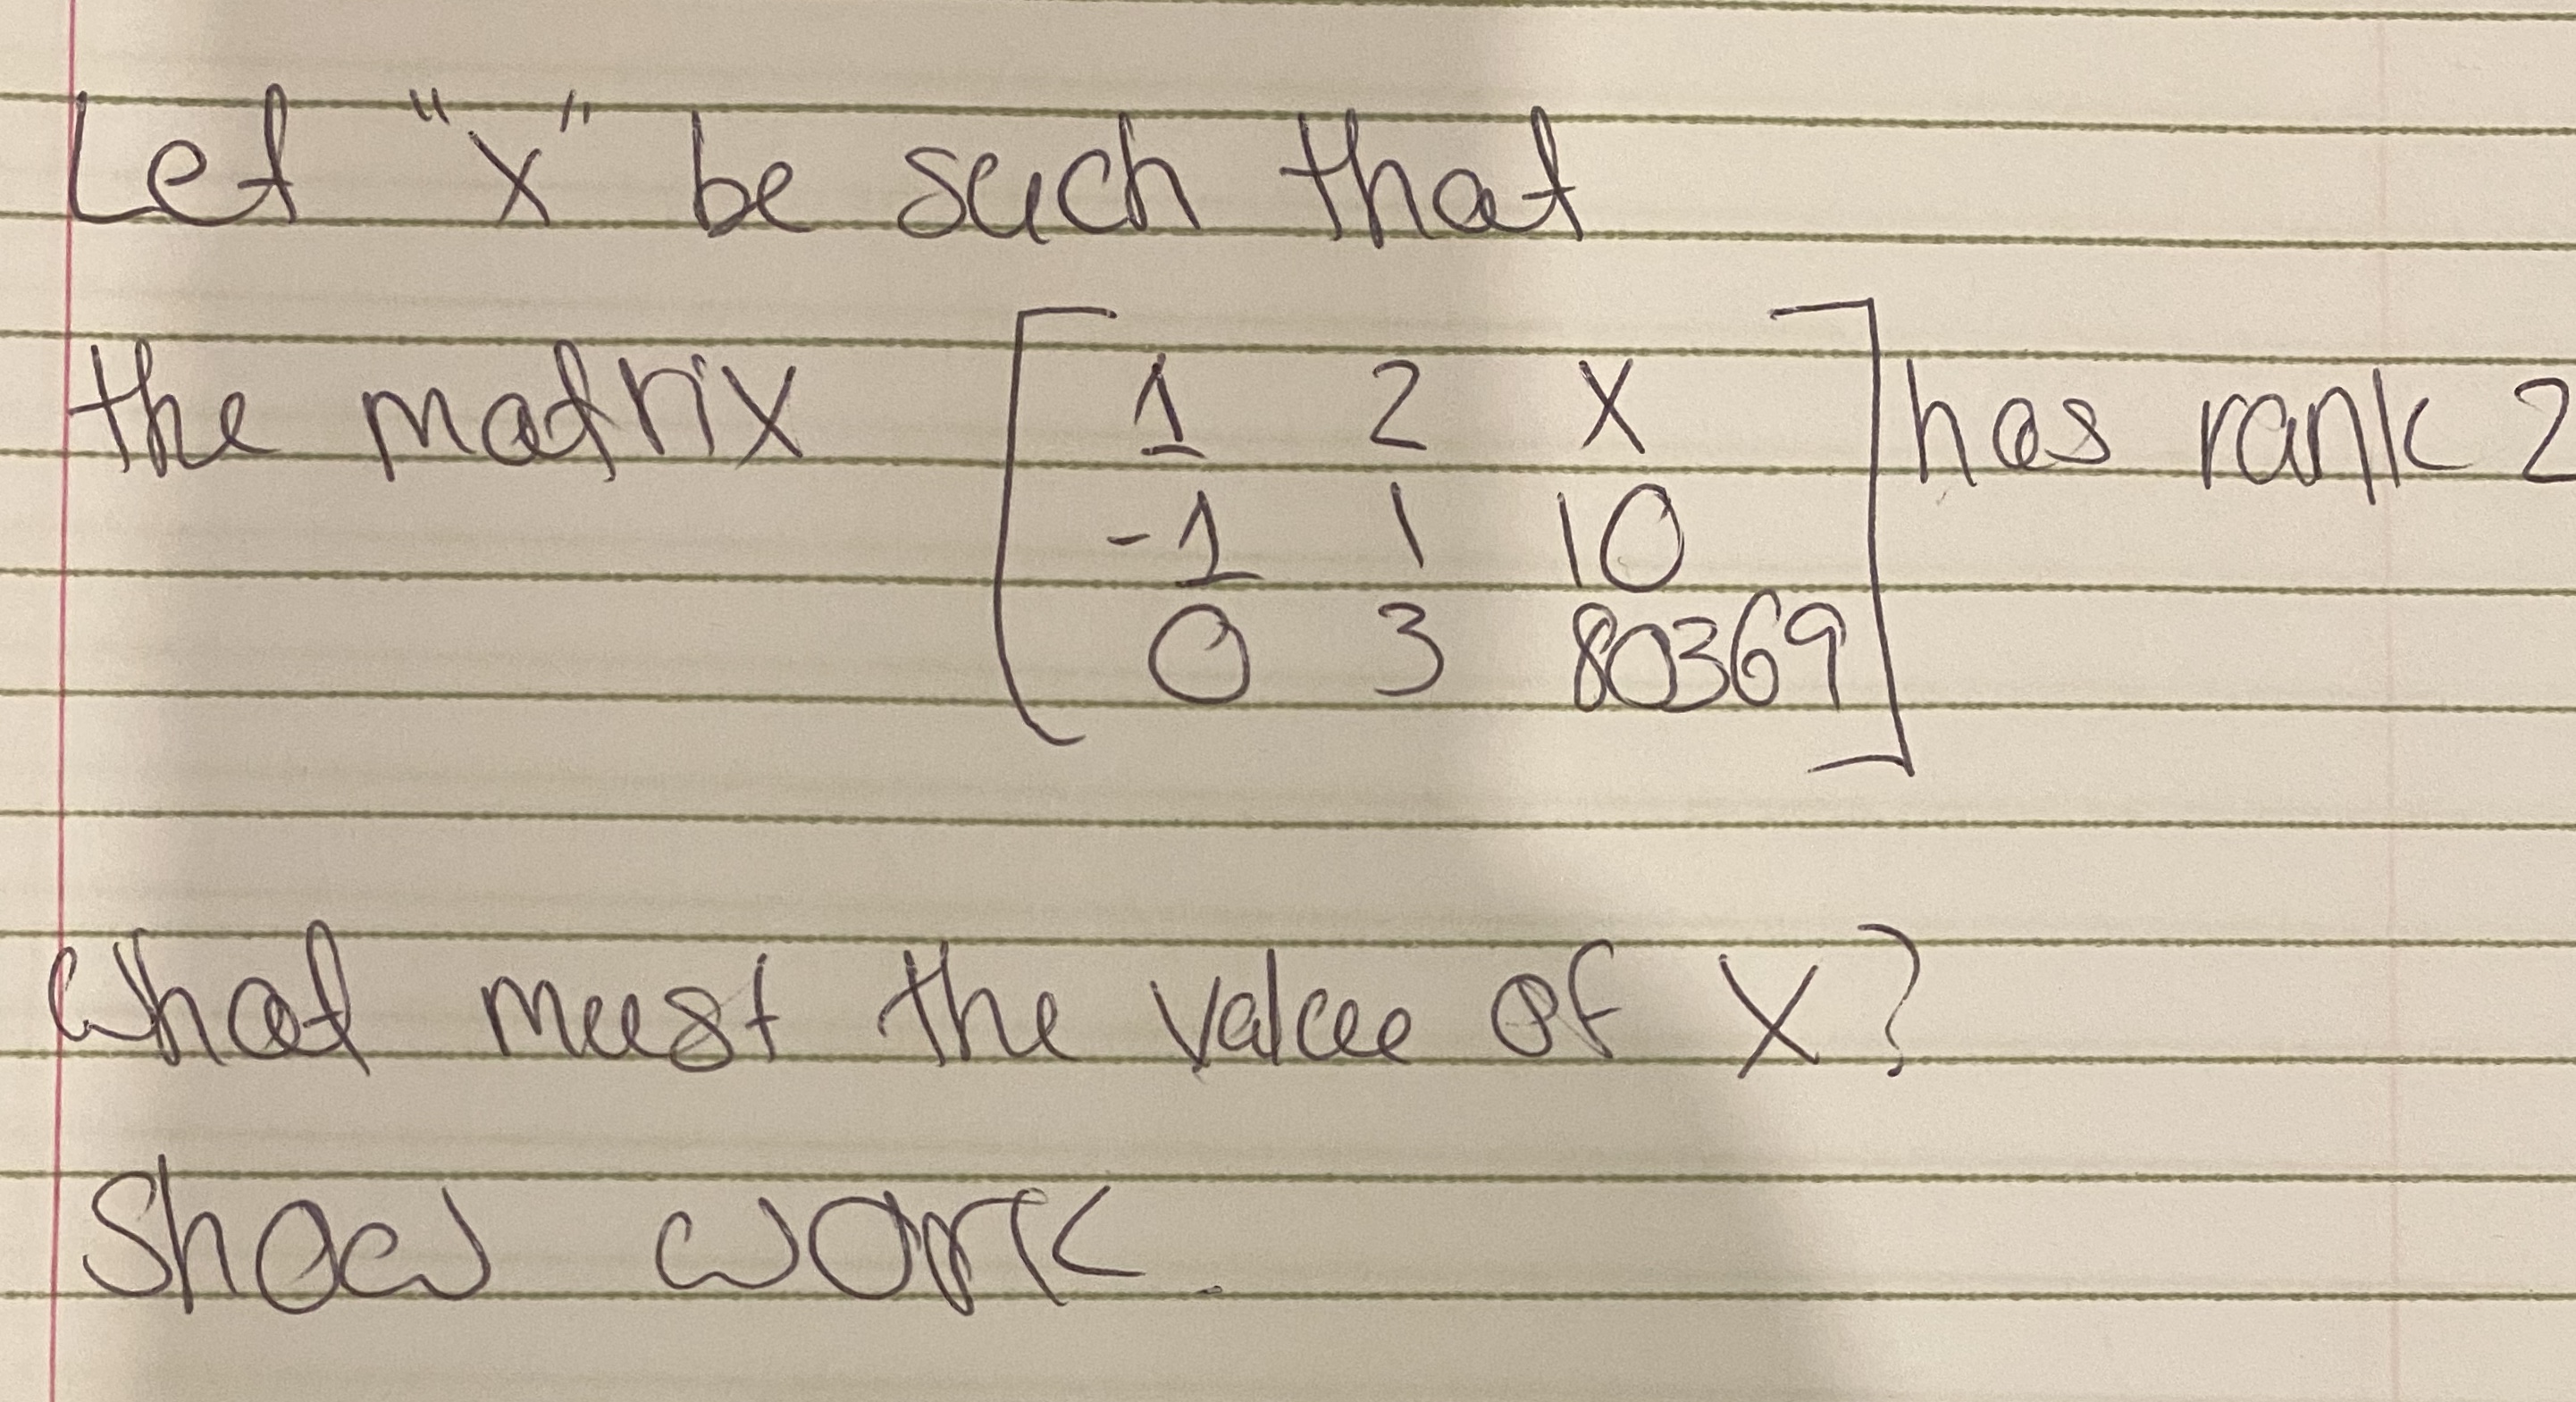 Let "x" be such that
the matrix [1 2 x has rank 2
-1 1 10
0 3 80369]
what must the value of x?
Show work.